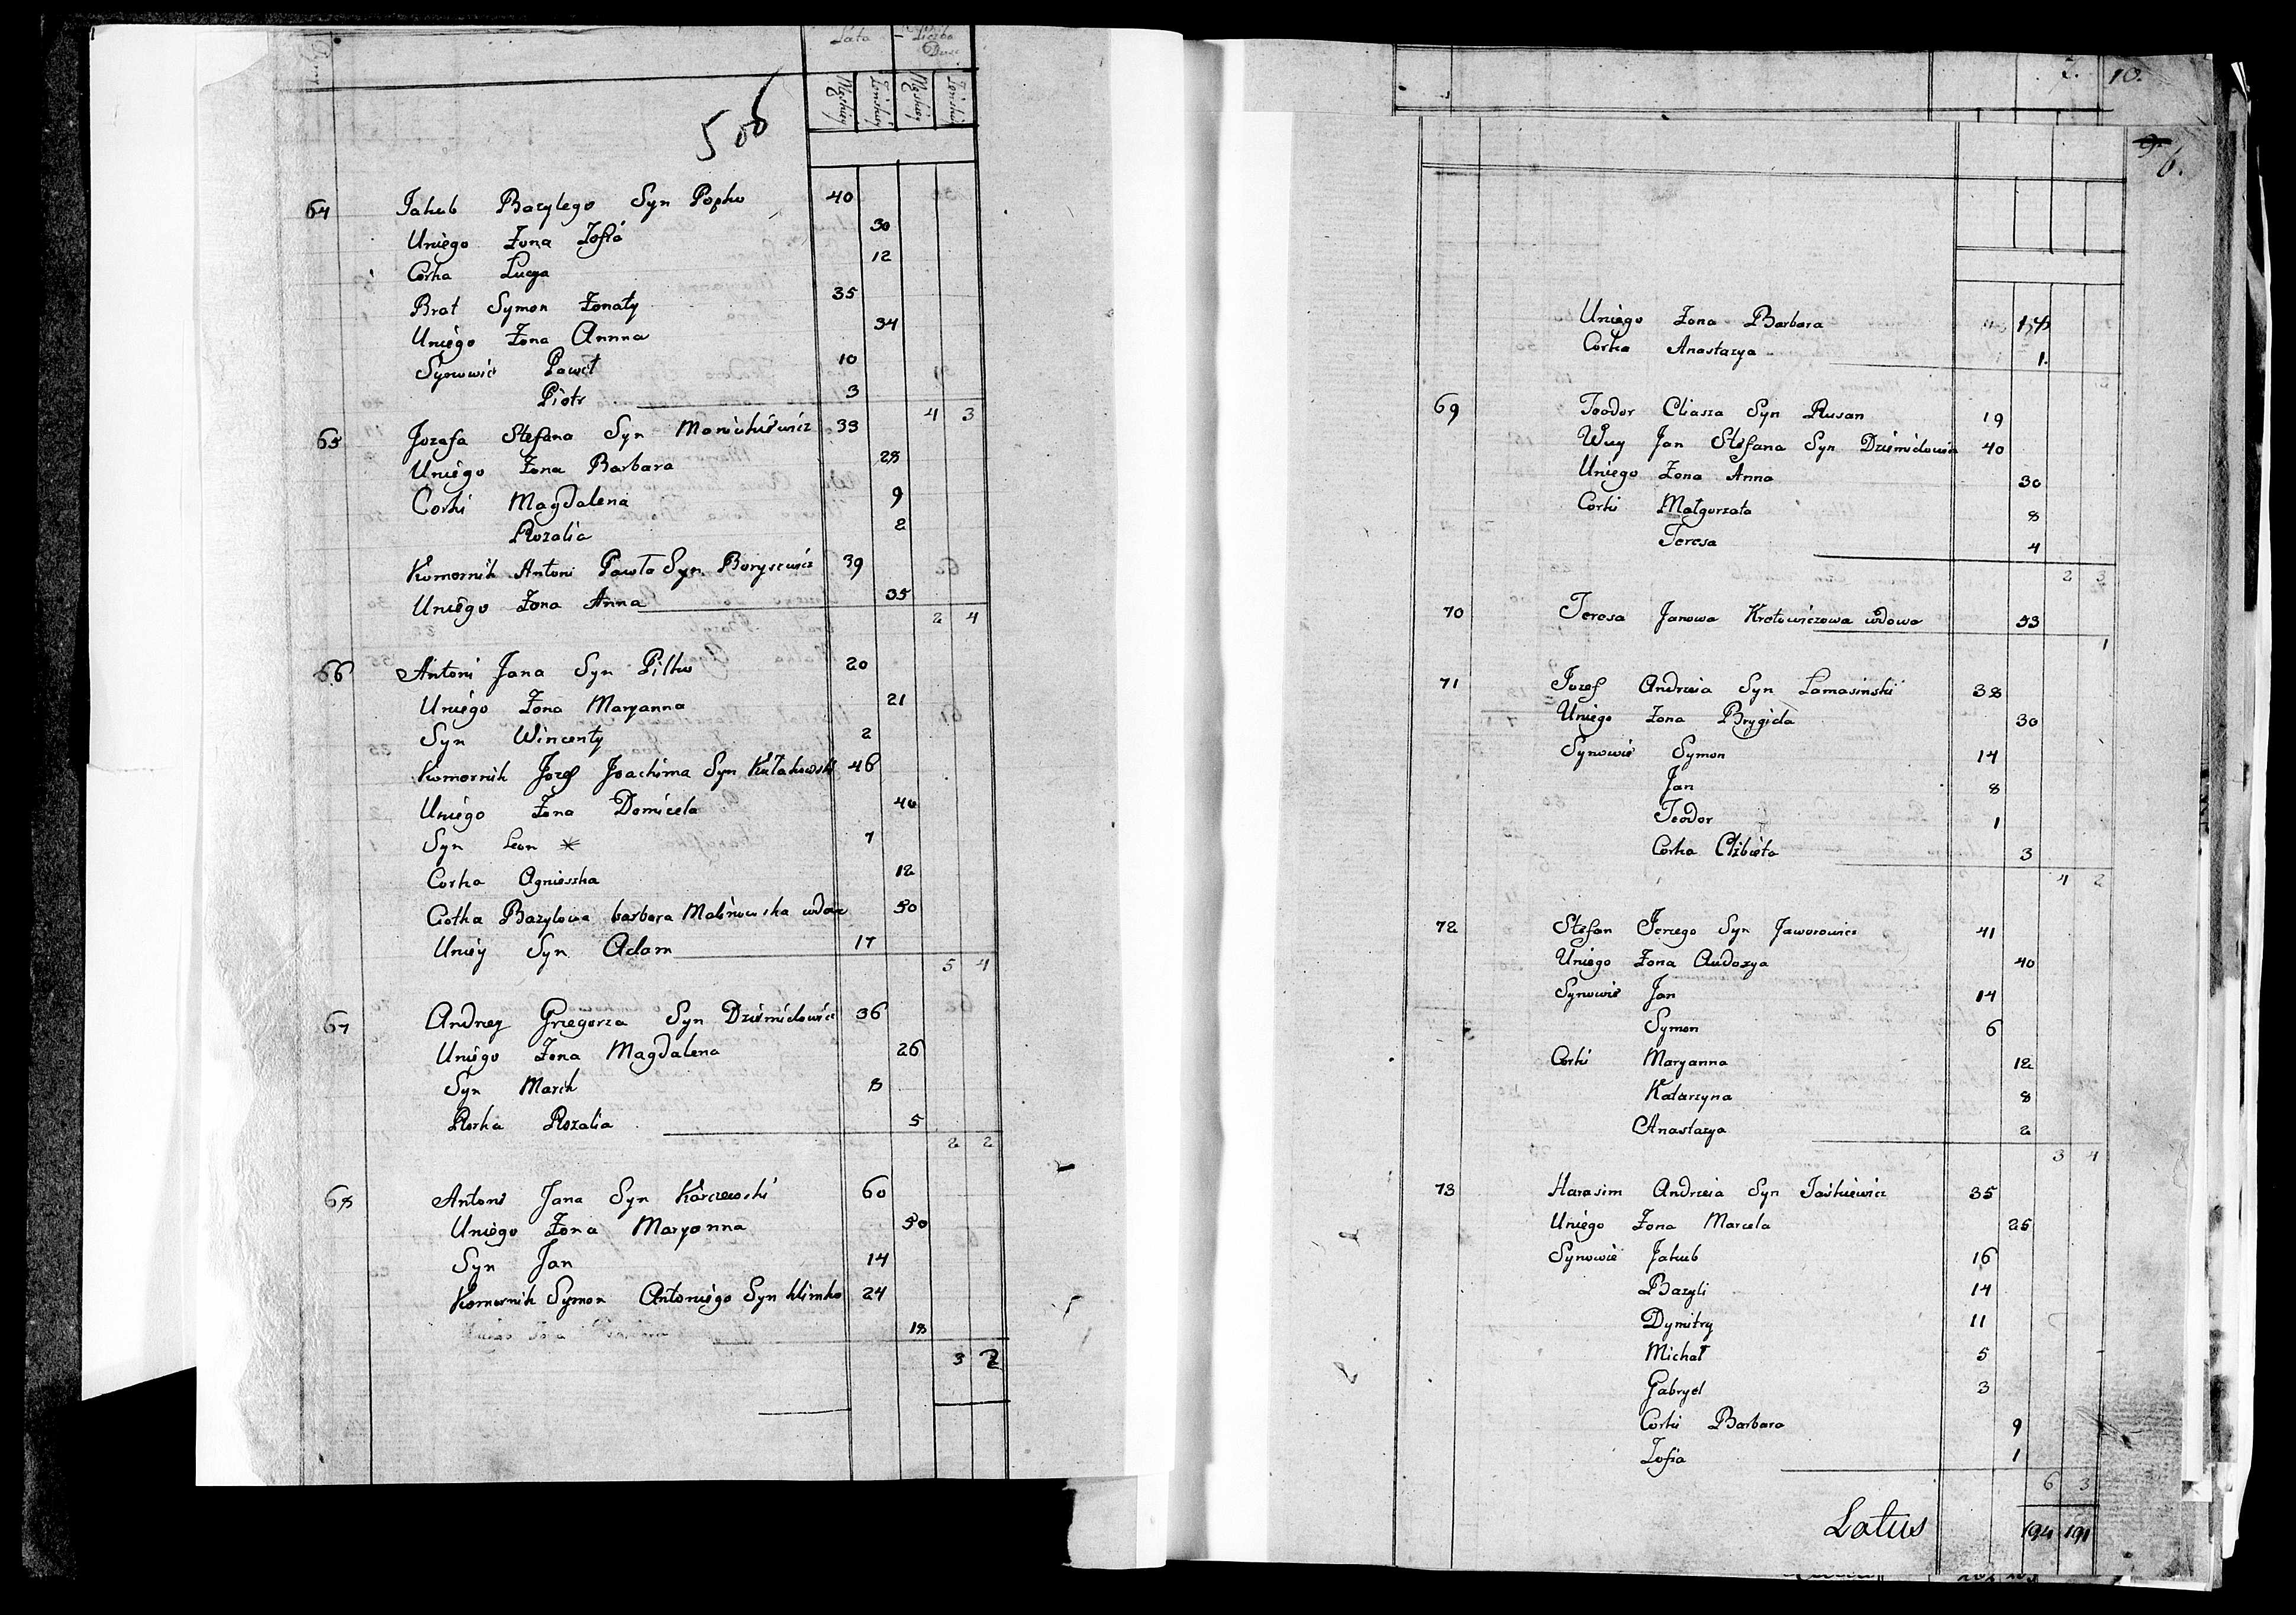 Lata Liczba Dusz
Męskiey Żenskiey Męskiey Żenskiey
506
64 Jakub Bazylego Syn Popko 40
Uniego Żona Zofia 30
Corka Lucya 12
Brat Symon Żonaty 35
Uniego Żona Annna 34
Synowie Paweł 10
Piotr 3
4 3
65 Jozafa Stefana Syn 33
Uniego Żona Barbara 28
Corki Magdalena 9
Rozalia 2
Komornik Antoni Pawła Syn Borysewicz 39
Uniego Żona Anna 35
2 4
66 Antoni Jana Syn Pilko 20
Uniego Żona Maryanna 21
Syn Wincenty 2
Komornik Jozef Joachima Syn Kułakowski 46
Uniego Żona Domicela 40
Syn Leon * 7
Corka Agnieszka 12
Ciotka Bazylowa barbara Malinowska wdowa 50
Uniey Syn Adam 17
5 4
67 Andrzey Grzegorza Syn Dziemidowicz 36
Uniego Żona Magdalena 26
Syn Marek 8
Rorka Rozalia 5
2 2
68 Antoni Jana Syn Karczewski 60
Uniego Żona Maryanna 50
Syn Jan 14
Komornik Symon Antoniego Syn klimko 24
Uniego Żona 18
3 2
7. 10.
9. 6.
Uniego Żona Barbara
Corka Anastazya 1.
69 Teodor Eliasza Syn Rusan 19
Wuy Jan Stefana Syn Dziemidowicz 40
Uniego Żona Anna 30
Corki Małgorzata 8
Teresa 4
2 3
70 Teresa Janowa Krotowiczowa wdowa 53
1
71 Jozef Andrzeia Syn Lamasinski 38
Uniego Żona Brygida 30
Synowie Symon 14
Jan 8
Teodor 1
Corka Elżbieta 3
4 2
72 Stefan Jerzego Syn Jaworowicz 41
Uniego Żona Audozya 40
Synowie Jan 14
Symon 6
Corki Maryanna 12
Katarzyna 8
Anastazya 2
3 4
73 Harasim Andrzeia Syn Jaśkiewicz 35
Uniego Żona Marcela 26
Synowie Jakub 16
Bazyli 14
Dymitry 11
Michał 5
Gabryel 3
Corki Barbara 9
Zofia 1
6 3
Latus 194 191